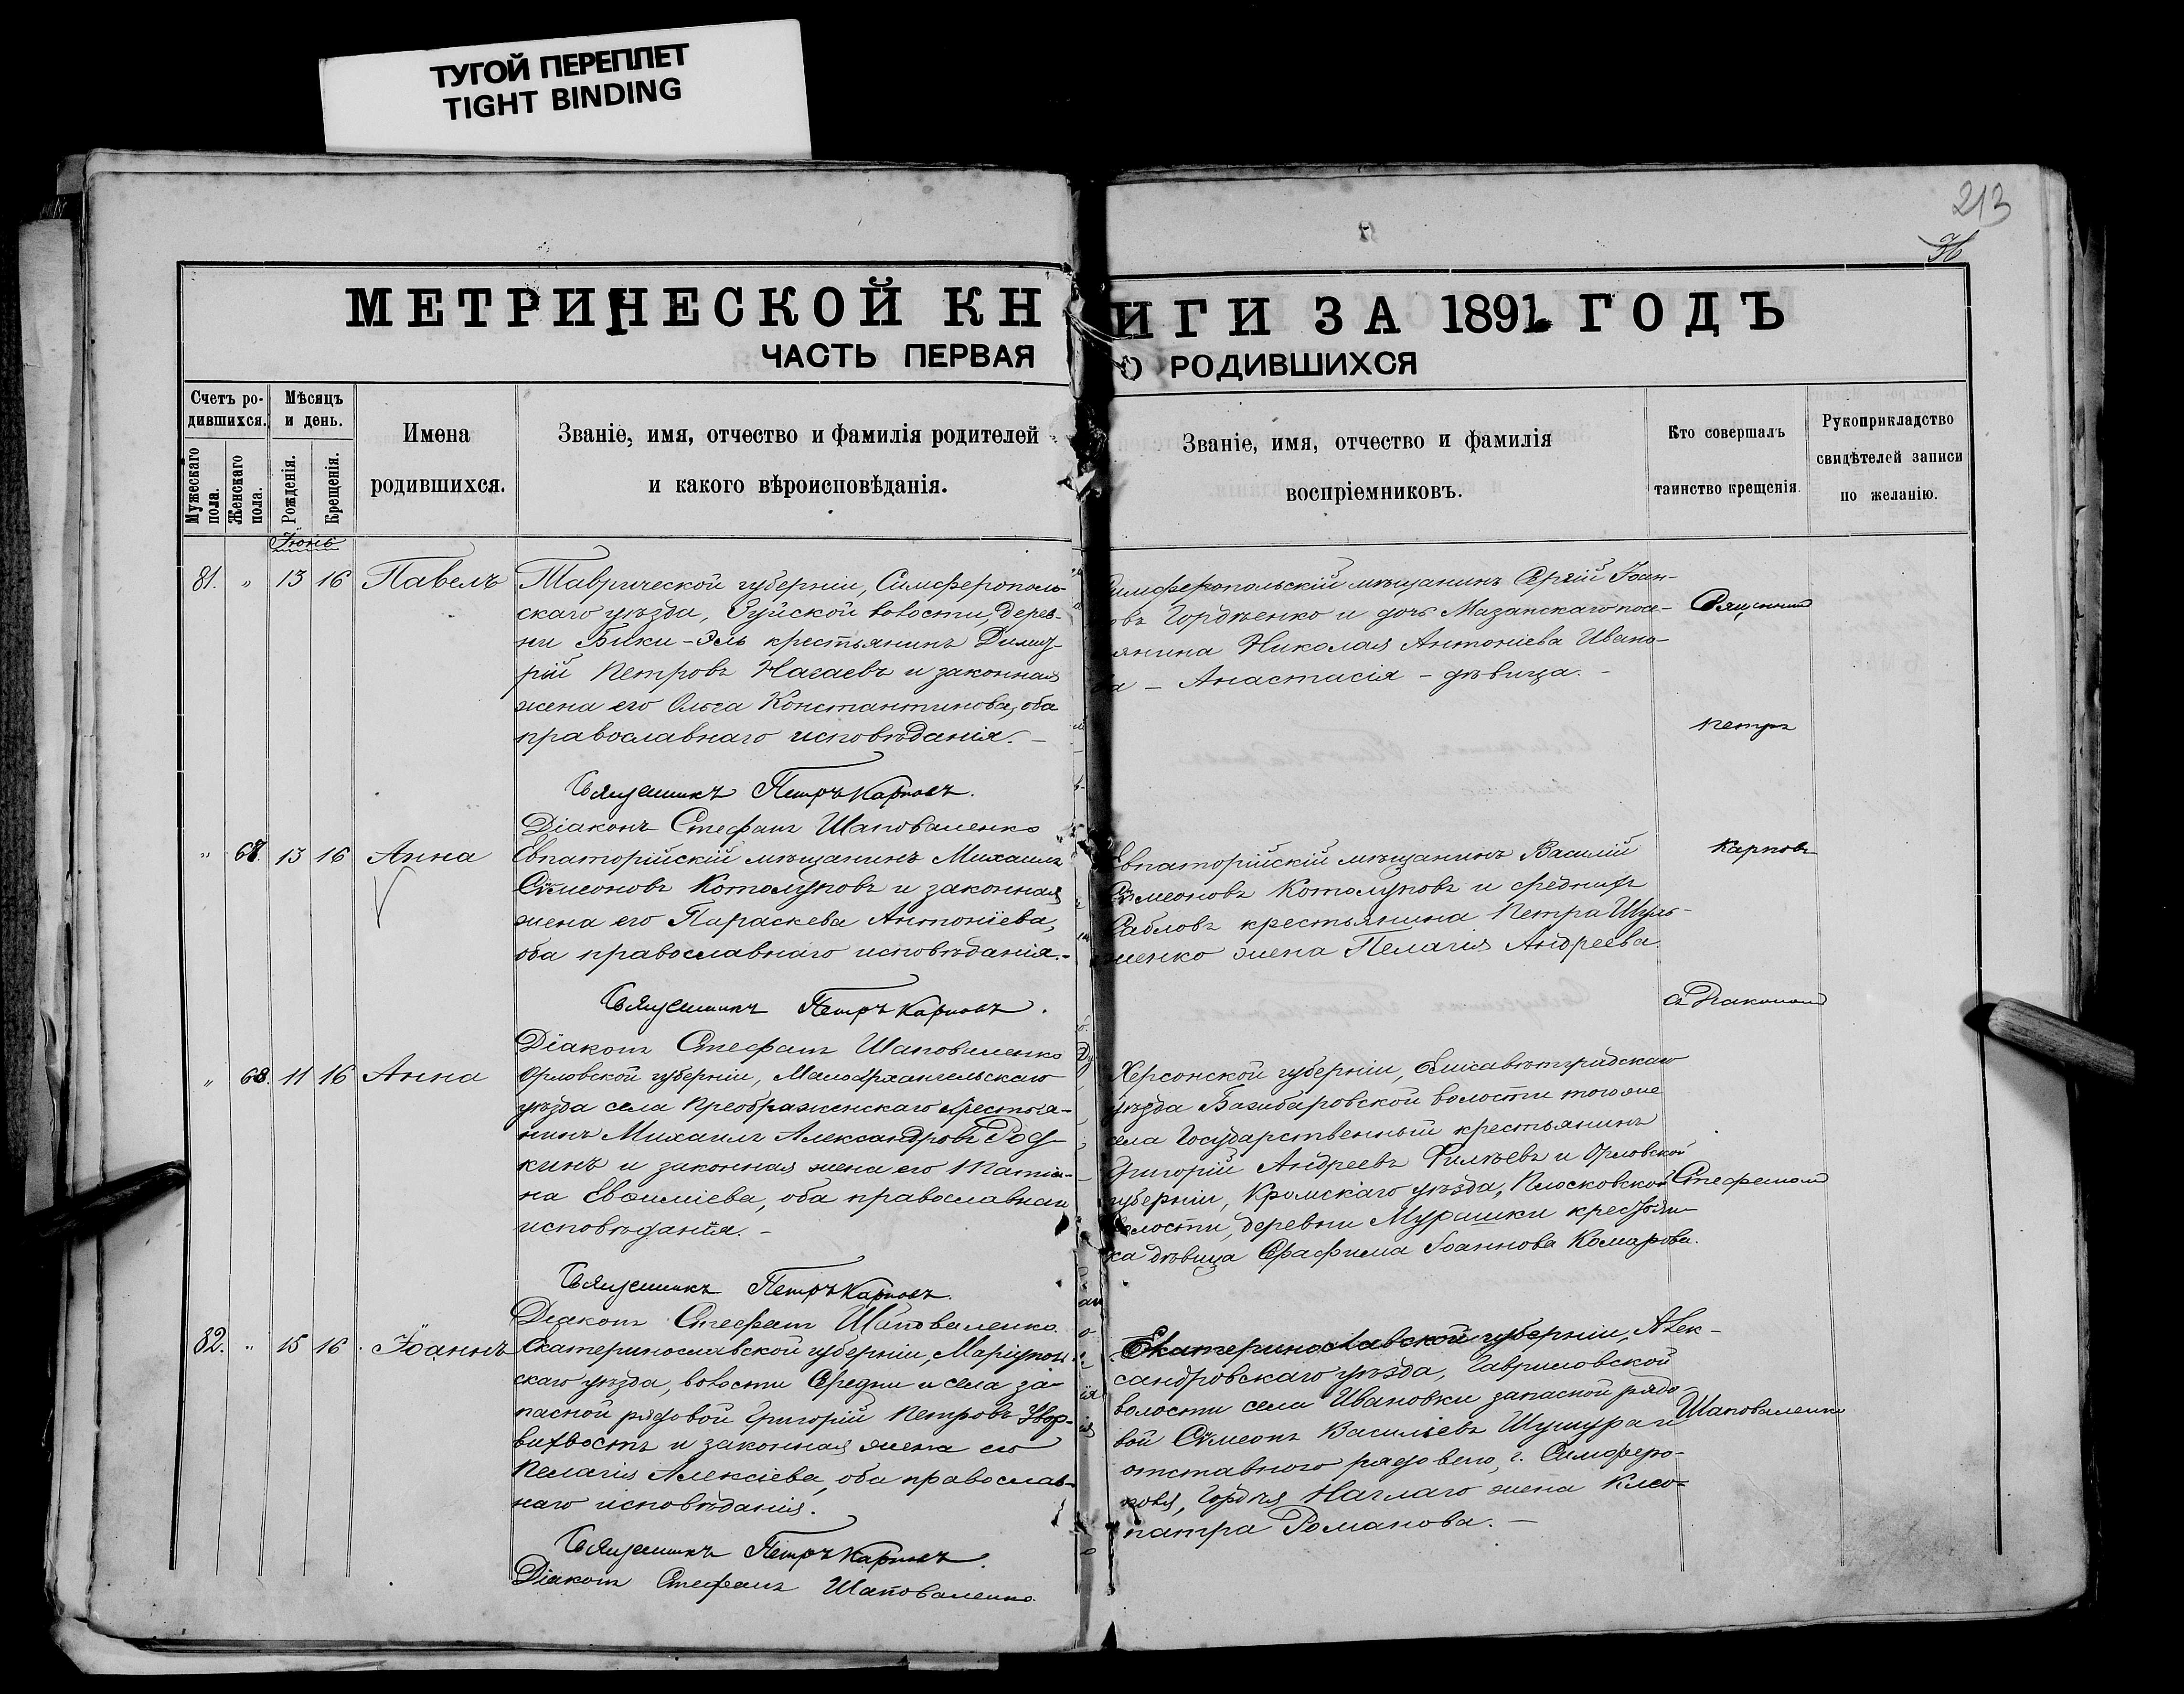 ТУГОЙ ПЕРЕПЛЕТ
TIGHT BINDING
213
МЕТРИЧЕСКОЙ КНИГИ ЗА 1891 ГОДЪ
ЧАСТЬ ПЕРВАЯ О РОДИВШИХСЯ
Счетъ ро-
дившихся.
Мужескаго пола.
Женскаго пола.
Мѣсяцъ
и день.
Рожденія.
Крещенія.
Имена
родившихся.
Званіе, имя, отчество и фамилія родителей
и какого вѣроисповѣданія.
Званіе, имя, отчество и фамилія
воспріемниковъ.
Кто совершалъ
таинство крещенія.
Рукоприкладство
свидѣтелей записи
по желанію.
Іюнь
81. " 13 16 Павелъ
Таврической губерніи, Симферополь-
скаго уѣзда, Зуйской волости, дерев-
ни Бики-Эль крестьянинъ Димит-
рій Петровъ Нагаевъ и законная
жена его Ольга Константинова, оба
православнаго исповѣданія. —
Священникъ Петръ Карповъ.
Діаконъ Стефанъ Шаповаленко
Симферопольскій мѣщанинъ Сергій Іоан-
овъ Гордѣенко и дочь Мазанскаго посе-
янина Николая Антоніева Ивано-
ва — Анастасія — дѣвица. —
Священник
Петръ
Карповъ
съ Діакономъ
Стефаномъ
Шаповаленко
" 67. 13 16 Анна
Евпаторійскій мѣщанинъ Михаилъ
Сѵмеоновъ Котолуповъ и законная
жена его Параскева Антоніева,
оба православнаго исповѣданія. —
Священникъ Петръ Карповъ.
Діаконъ Стефанъ Шаповаленко
Евпаторійскій мѣщанинъ Василій
Сѵмеоновъ Котолуповъ и среднихъ
Сабловъ крестьянина Петра Шуль-
женко жена Пелагія Андреева.
" 68. 11 16 Анна
Орловской губерніи, Малоархангельскаго
уѣзда села Преображенскаго крестья-
нинъ Михаилъ Александровъ Род-
кинъ и законная жена его Матіа-
на Евѳиміева, оба православнаго
исповѣданія. —
Священникъ Петръ Карповъ.
Діаконъ Стефанъ Шаповаленко.
Херсонской губерніи, Елисаветградскаго
уѣзда волости того же
села Государственный крестьянинъ
Григорій Андреевъ и Орловской
губерніи, Кромскаго уѣзда, Плосковской
волости, деревни Мурашки крестьян-
ка дѣвица Серафима Іоаннова Комарова.
82. " 15 16 Іоаннъ
Екатеринославской губерніи, Маріупольс-
скаго уѣзда, волости Середни и села за-
пасной рядовой Григорій Петровъ
и законная жена его
Пелагія Алексіева, оба православ-
наго исповѣданія.
Священникъ Петръ Карповъ.
Діаконъ Стефанъ Шаповаленко.
Екатеринославской губерніи, Алек-
сандровскаго уѣзда, Гавриловской
волости села Ивановки запасной рядо-
вой Сѵмеонъ Василіевъ Шушура и
отставного рядового, г. Симферо-
поля, Гордѣя Наглаго жена Клео-
патра Романова. —